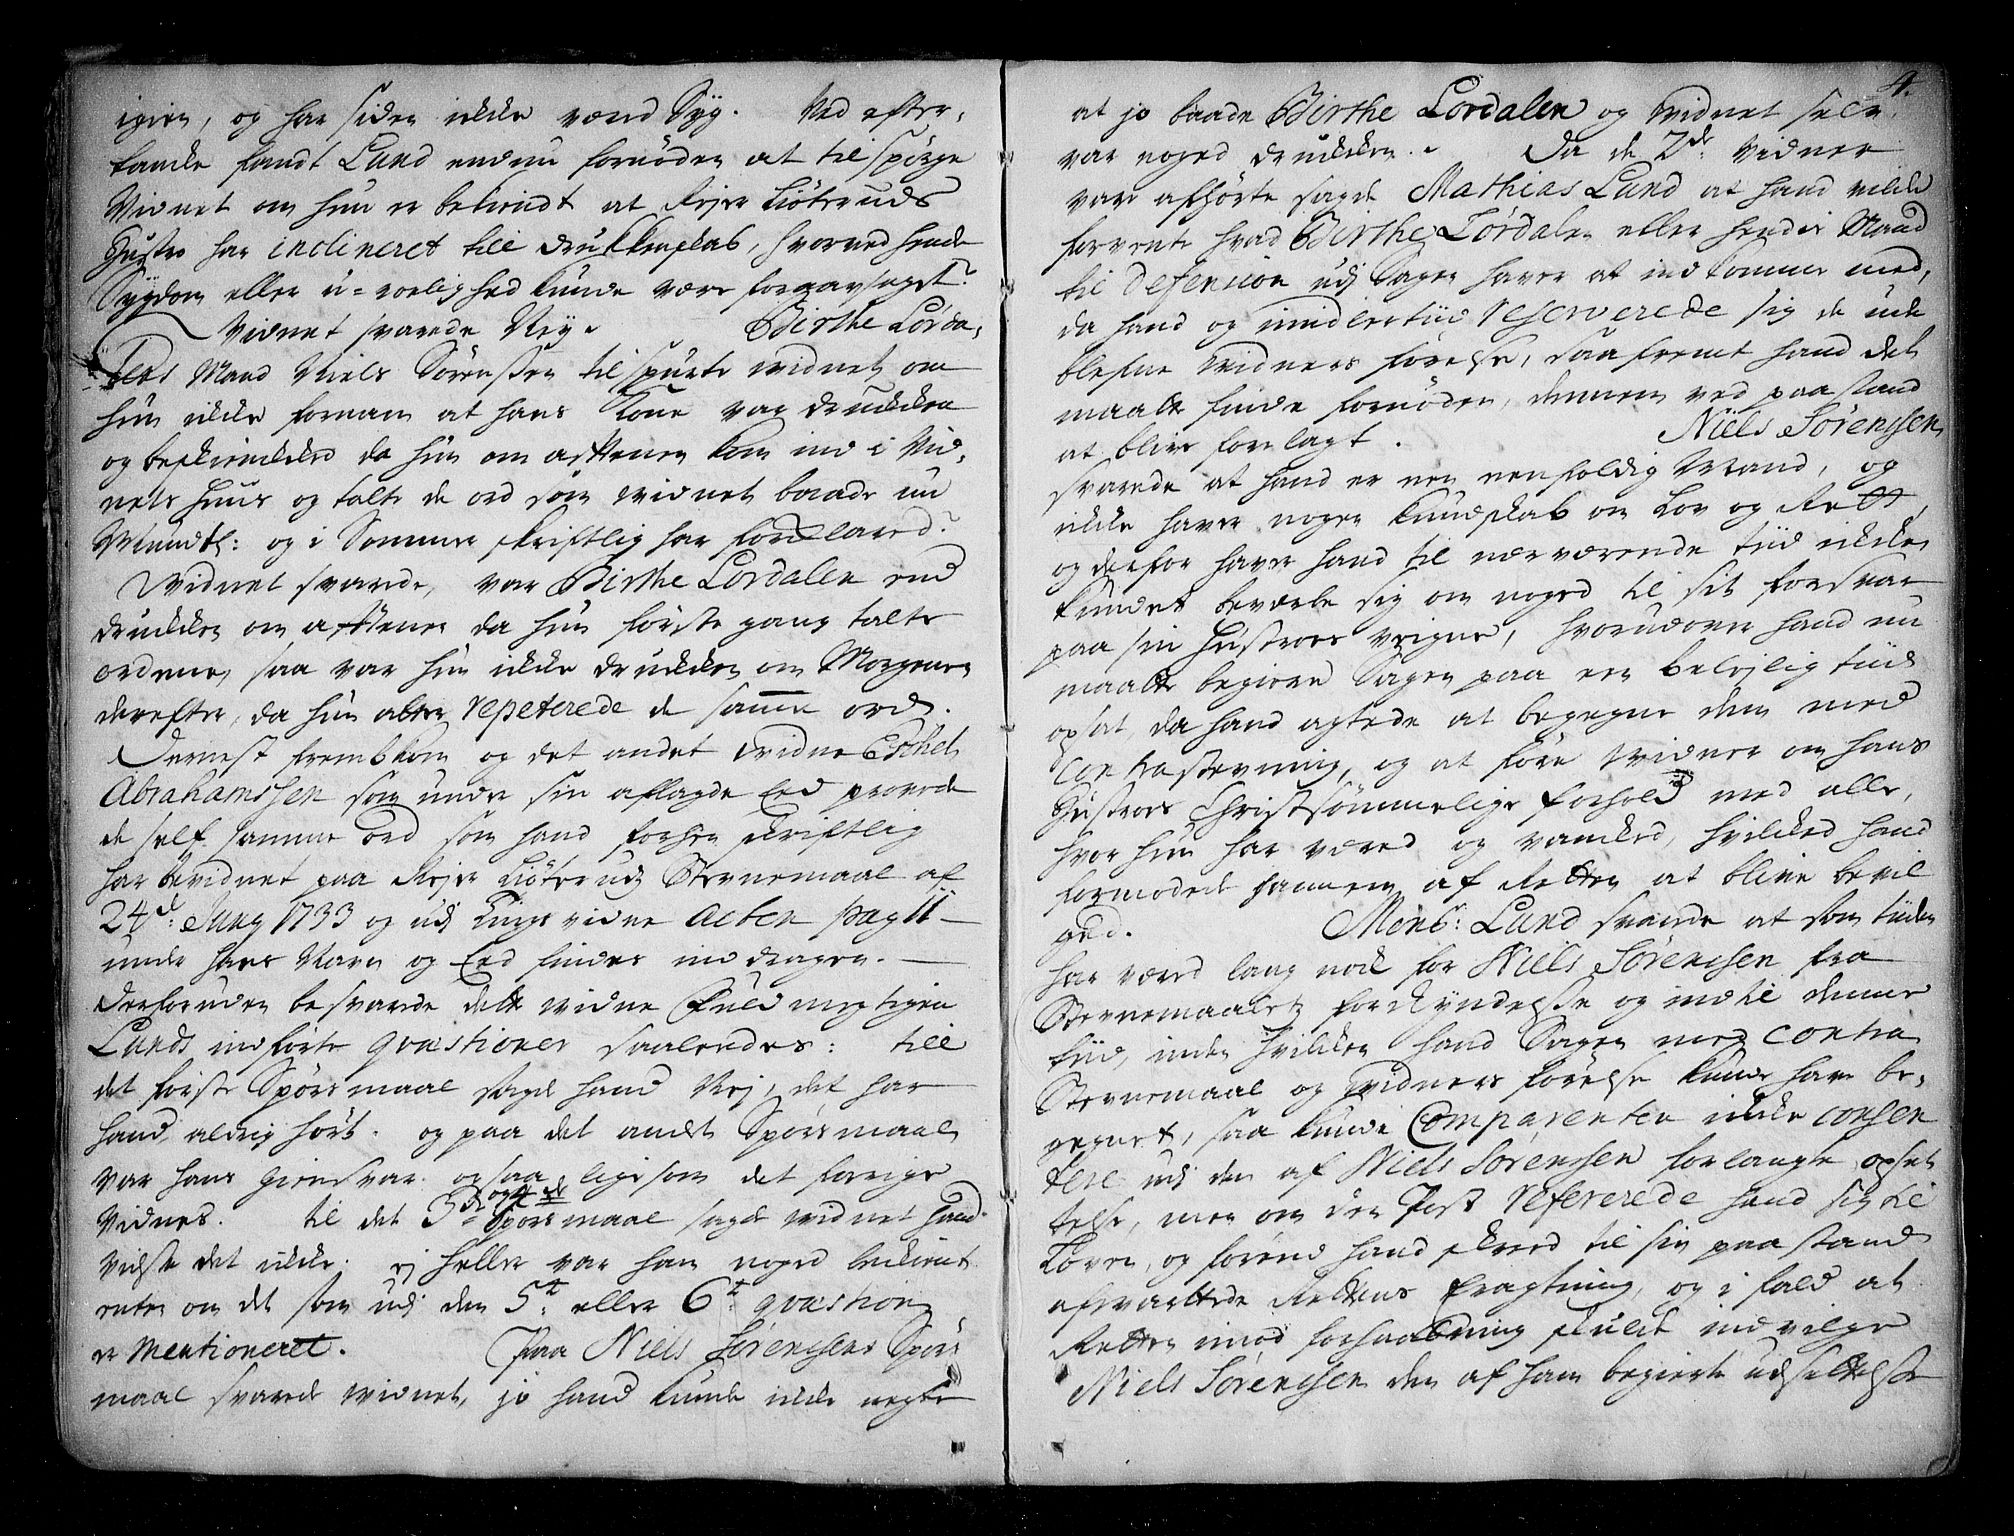 igien, og har siden icke værd Syg. Ved efter-
tancke fandt Lund endnu fornøden at tilspørge
Vidnet om hun er bekiendt at Rejer Kiøteruds
Hustro har inclineret till drukkenskab, hvorved hendes
Sygdom eller u-roelighed kunde være foraarsaget?
Vidnet svarede Nej. Birthe Lorda-
lens Mand Niels Sørenssen tilspurte vidnet om
hun icke fornam at hans Kone var drucken
og beskiencked da hun om afftenen kom ind i Vid-
nets Huus og talte de ord som vidnet baade nu
Mundtl: og i Sommer skriftlig har forklared?
Vidnet svarede, var Birthe Lordalen end
drucken om afftenen da hun første gang talte
ordene, saa var hun icke drucken om Morgenen
derefter, da hun atter repeterede de samme ord.
Dernest frembkom og det andet vidne Eskel
Abrahamssen som under sin aflagde Eed provede
de self samme ord som hand forhen skriftlig
har bevidnet paa Rejer Kiøteruds Stevnemaal af
24d: Juny 1733 og udj Tings vidne acten pag 11
under hans Navn og Eed findes inddragen.
Desforuden besvarede dette vidne Fuldmegtigen
Lunds indførte qvæstioner saaledes: till
det første Spørsmaal sagde hand Nej, det har
hand aldrig hørt. og paa det andet Spørsmaal
var hans giensvar ogsaa ligesom det forrige
Vidnes. til det 3de og 4de Spørsmaal sagde vidnet hand
vidste det icke. ej heller var ham noged bekient
enten om det som udj den 5te: eller 6te: qvæstion
er mentioneret. Paa Niels Sørensens Spørs
maal svarede vidnet, jo hand kunde icke negte
4.
at jo baade Birthe Lordalen og vidnet selv
var noged drucken. Da de 2de: vidner
vare afhørte sagde Mathias Lund at hand vilde
forvente hvad Birthe Lordalen eller hendes Mand
til defension udj Sagen haver at indkomme med,
da hand og imidlertiid reserverede sig de ude
blefne vidners førelse, saafremt hand det
maatte finde fornøden, dennem ved paastand
at blive forelagt. Niels Sørensen
svarede at hand er een eenfoldig Mand, og
icke haver nogen kundskab om Lov og Rett,
og derfor haver hand til nærværende tiid icke
kundet beværbe sig om noged til sit forsvar
paa sin Hustroes veigne, hvorudover hand nu
maatte begiere Sagen paa een belejlig tiid
opsat, da hand agtede at begegne dem med
Contrastevning, og at føre vidner om hans
Hustroes Christsømmelige forhold med alle,
hvor hun har været og vancked, hvilcked hand
formodede hannem af Retten at blive bevil
ged. Monsr: Lund svarede at som tiiden
har været lang nock for Niels Sørensen fra
Stevnemaalets forkyndelse og indtil denne
tiid, inden hvilcken hand Sagen med contra
Stevnemaal og vidners førelse kunde have be-
gegnet, saa kunde Comparenten icke consen
tere udj den af Niels Sørenssen forlangte opset
telse, men om den Post refererede hand sig til
Loven, og førend hand skreed til sin paastand
afvarttede Rettens Eragtning, og i fald at
Retten imod forhaabning skulde indvilge
Niels Sørenssen den af ham begierte udsettelse